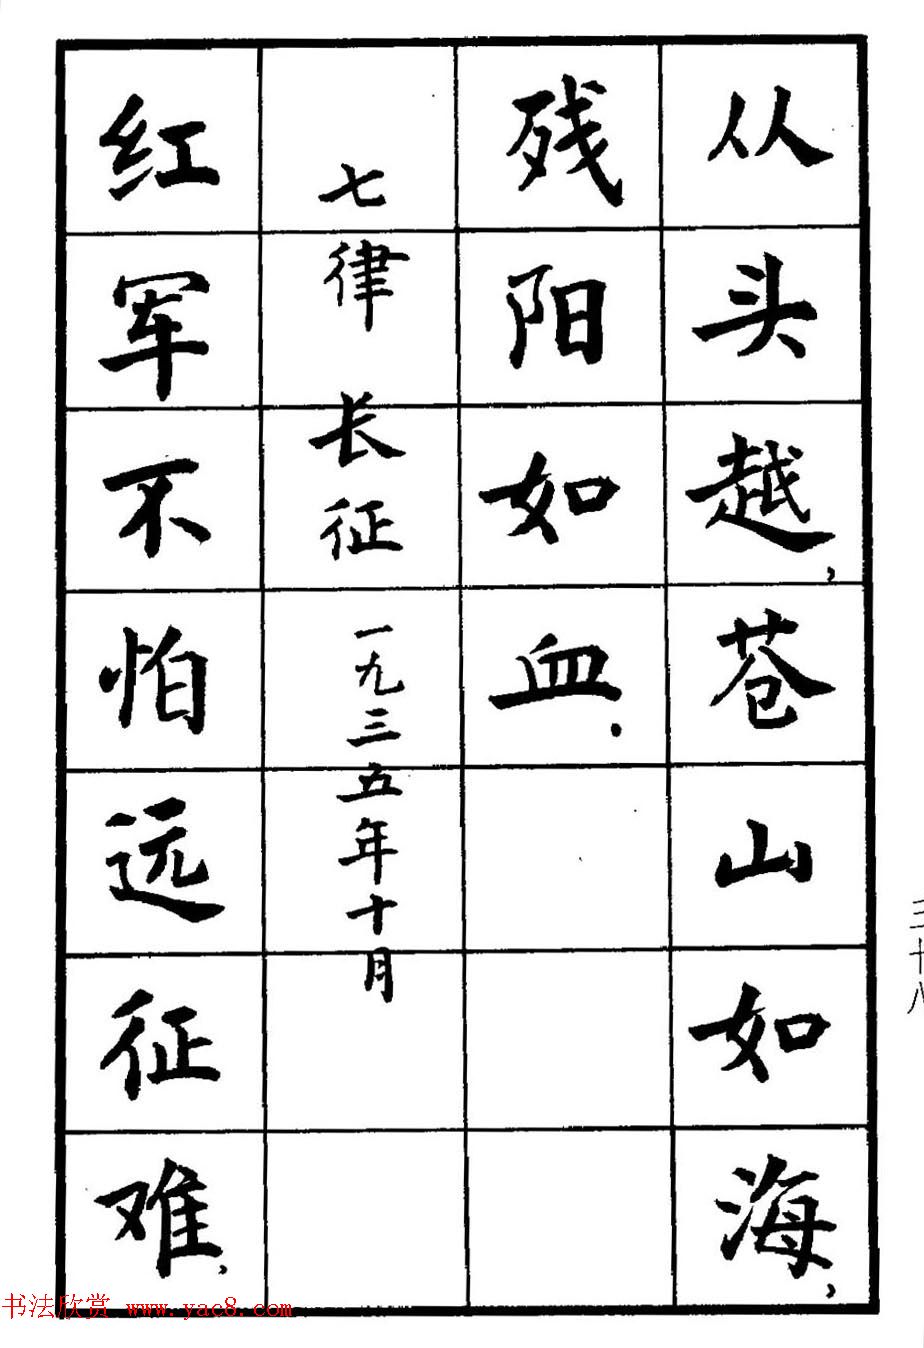 从头越，苍山如海，
残阳如血．
七律 长征 一九三五年十月
红军不怕远征难，
三十八
书法欣赏 www.yac8.com